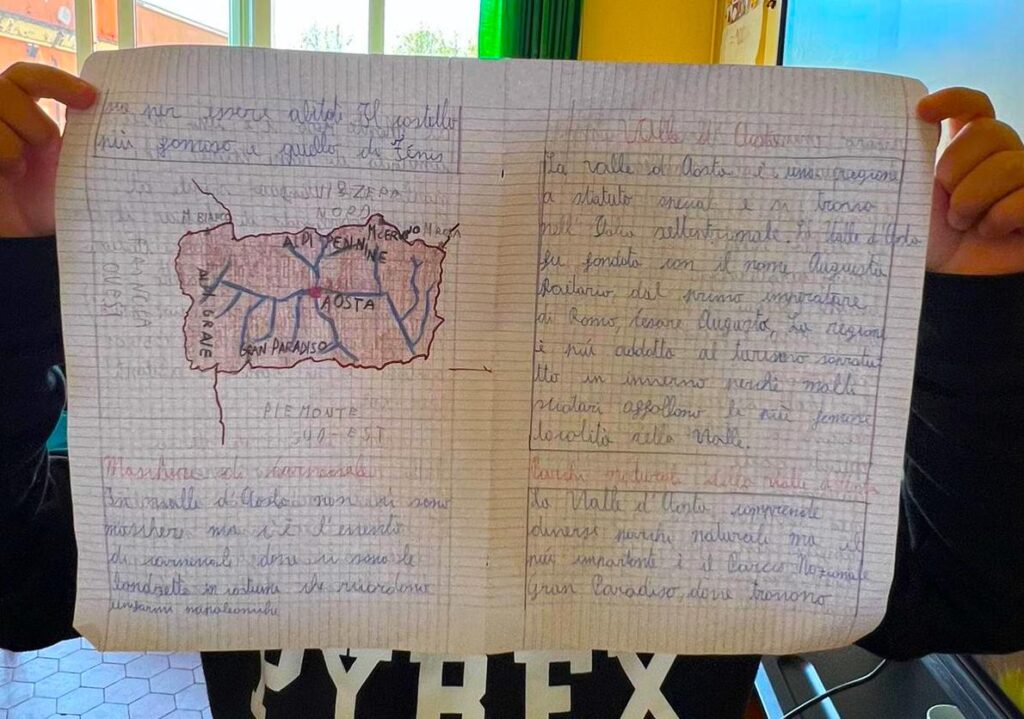 ma per essere abitati Il castello
più famoso e quello di Fénis
SVIZZERA
NORD
M. BIANCO
ALPI PENNINE
M. CERVINO
M. ROSA
FRANCIA
OVEST
ALPI GRAIE
AOSTA
GRAN PARADISO
PIEMONTE
SUD-EST
Maschere di carnevale
In valle d'Aosta non ci sono
maschere ma c'è l'evento
di carnevale dove ci sono le
landzette in costume che ricordono
uniformi napoleoniche
Valle d'Aosta
La valle d'Aosta è una regione
a statuto speciale e si trova
nell'Italia settentrionale. La Valle d'Aosta
fu fondata con il nome Augusta
Praetoria, dal primo imperatore
di Roma, Cesare Augusto, La regione
è più addatta al turismo sopratu-
tto in inverno perchè molti
sciatori affollono le più famose
località nella Valle.
Parchi naturali della Valle d'Aosta
La Valle d'Aosta comprende
diversi parchi naturali ma il
più importante è il Parco Nazionale
Gran Paradiso, dove trovono
PYREX